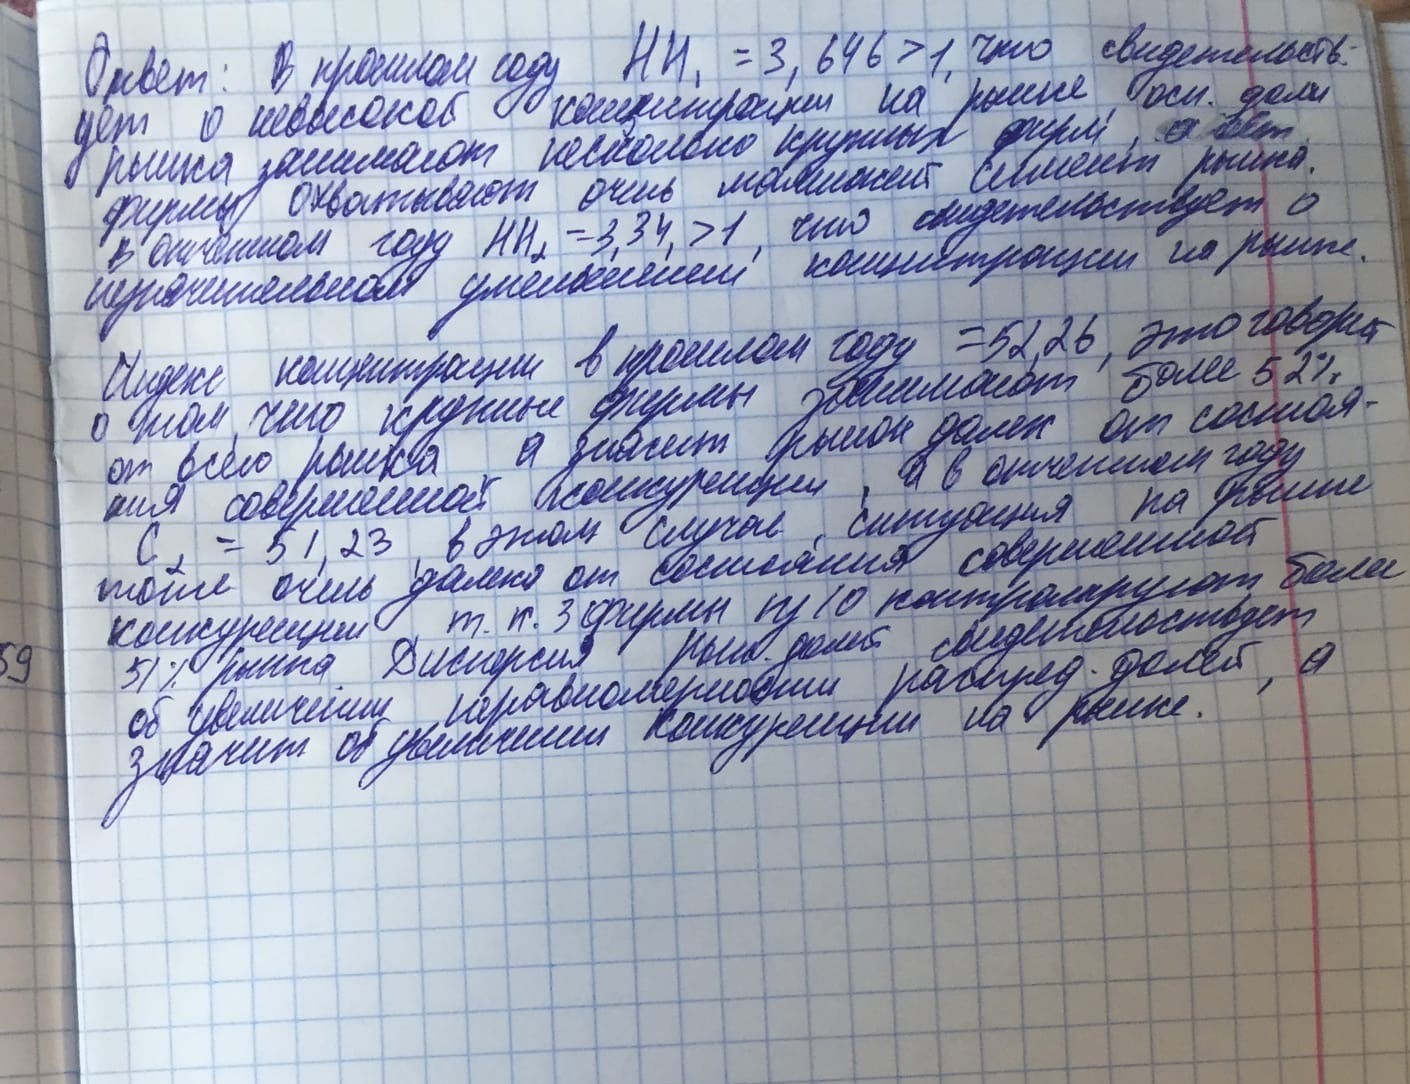 Ответ: В прошлом году НН₁ = 3,646 > 1, что свидетельств-
ует о невысокой концентрации на рынке, осн. доли
рынка занимают несколько крупных фирм, а
фирмы охватывают очень маленький сегмент рынка.
В отчётном году НН₂ = 3,34, > 1, что свидетельствует о
незначительном уменьшении концентрации на рынке.
Индекс концентрации в прошлом году = 52,26, это говорит
о том, что крупные фирмы занимают более 52%
от всего рынка а значит рынок далек от состоя-
ния совершенной конкуренции, а в отчетном году
С₂ = 51,23, в этом случае, ситуация на рынке
тоже очень далека от состояния совершенной
конкуренции т.к. 3 фирмы из 10 контролируют более
51% рынка Дисперсия рын. долей свидетельствует
об увеличении неравномерности распред. долей, а
значит об увеличении конкуренции на рынке.
59